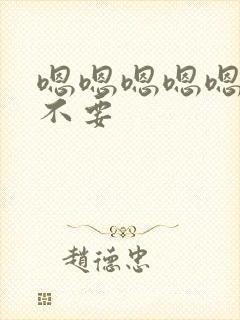 嗯嗯嗯嗯嗯
不要
趙德忠